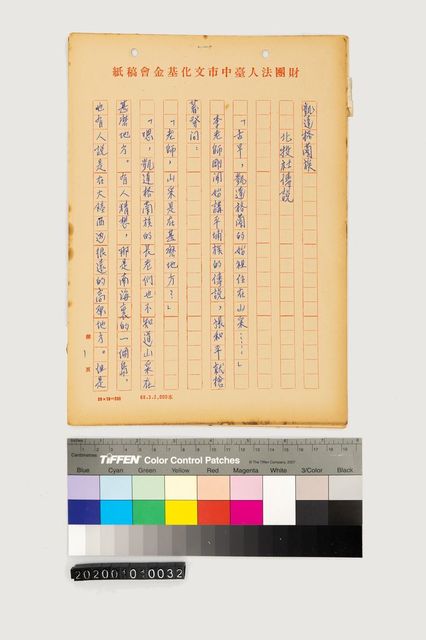 財團法人臺中市文化基金會稿紙
凱達格蘭族
北投社傳說
「古早，凱達格蘭的始祖住在山采……」
李老師剛開始講平埔族的傳說，張和平就搶
著發問：
「老師，山采是在甚麼地方？」
「嗯，凱達格蘭族的長老們也不知道山采在
甚麼地方。有人猜想，那是南海裏的一個島，
也有人說是在大陸西邊很遠的高原地方。但是
第 1 頁
68.3.2,000本
Centimetres
TIFFEN Color Control Patches
© The Tiffen Company, 2007
Blue Cyan Green Yellow Red Magenta White 3/Color Black
202001010032